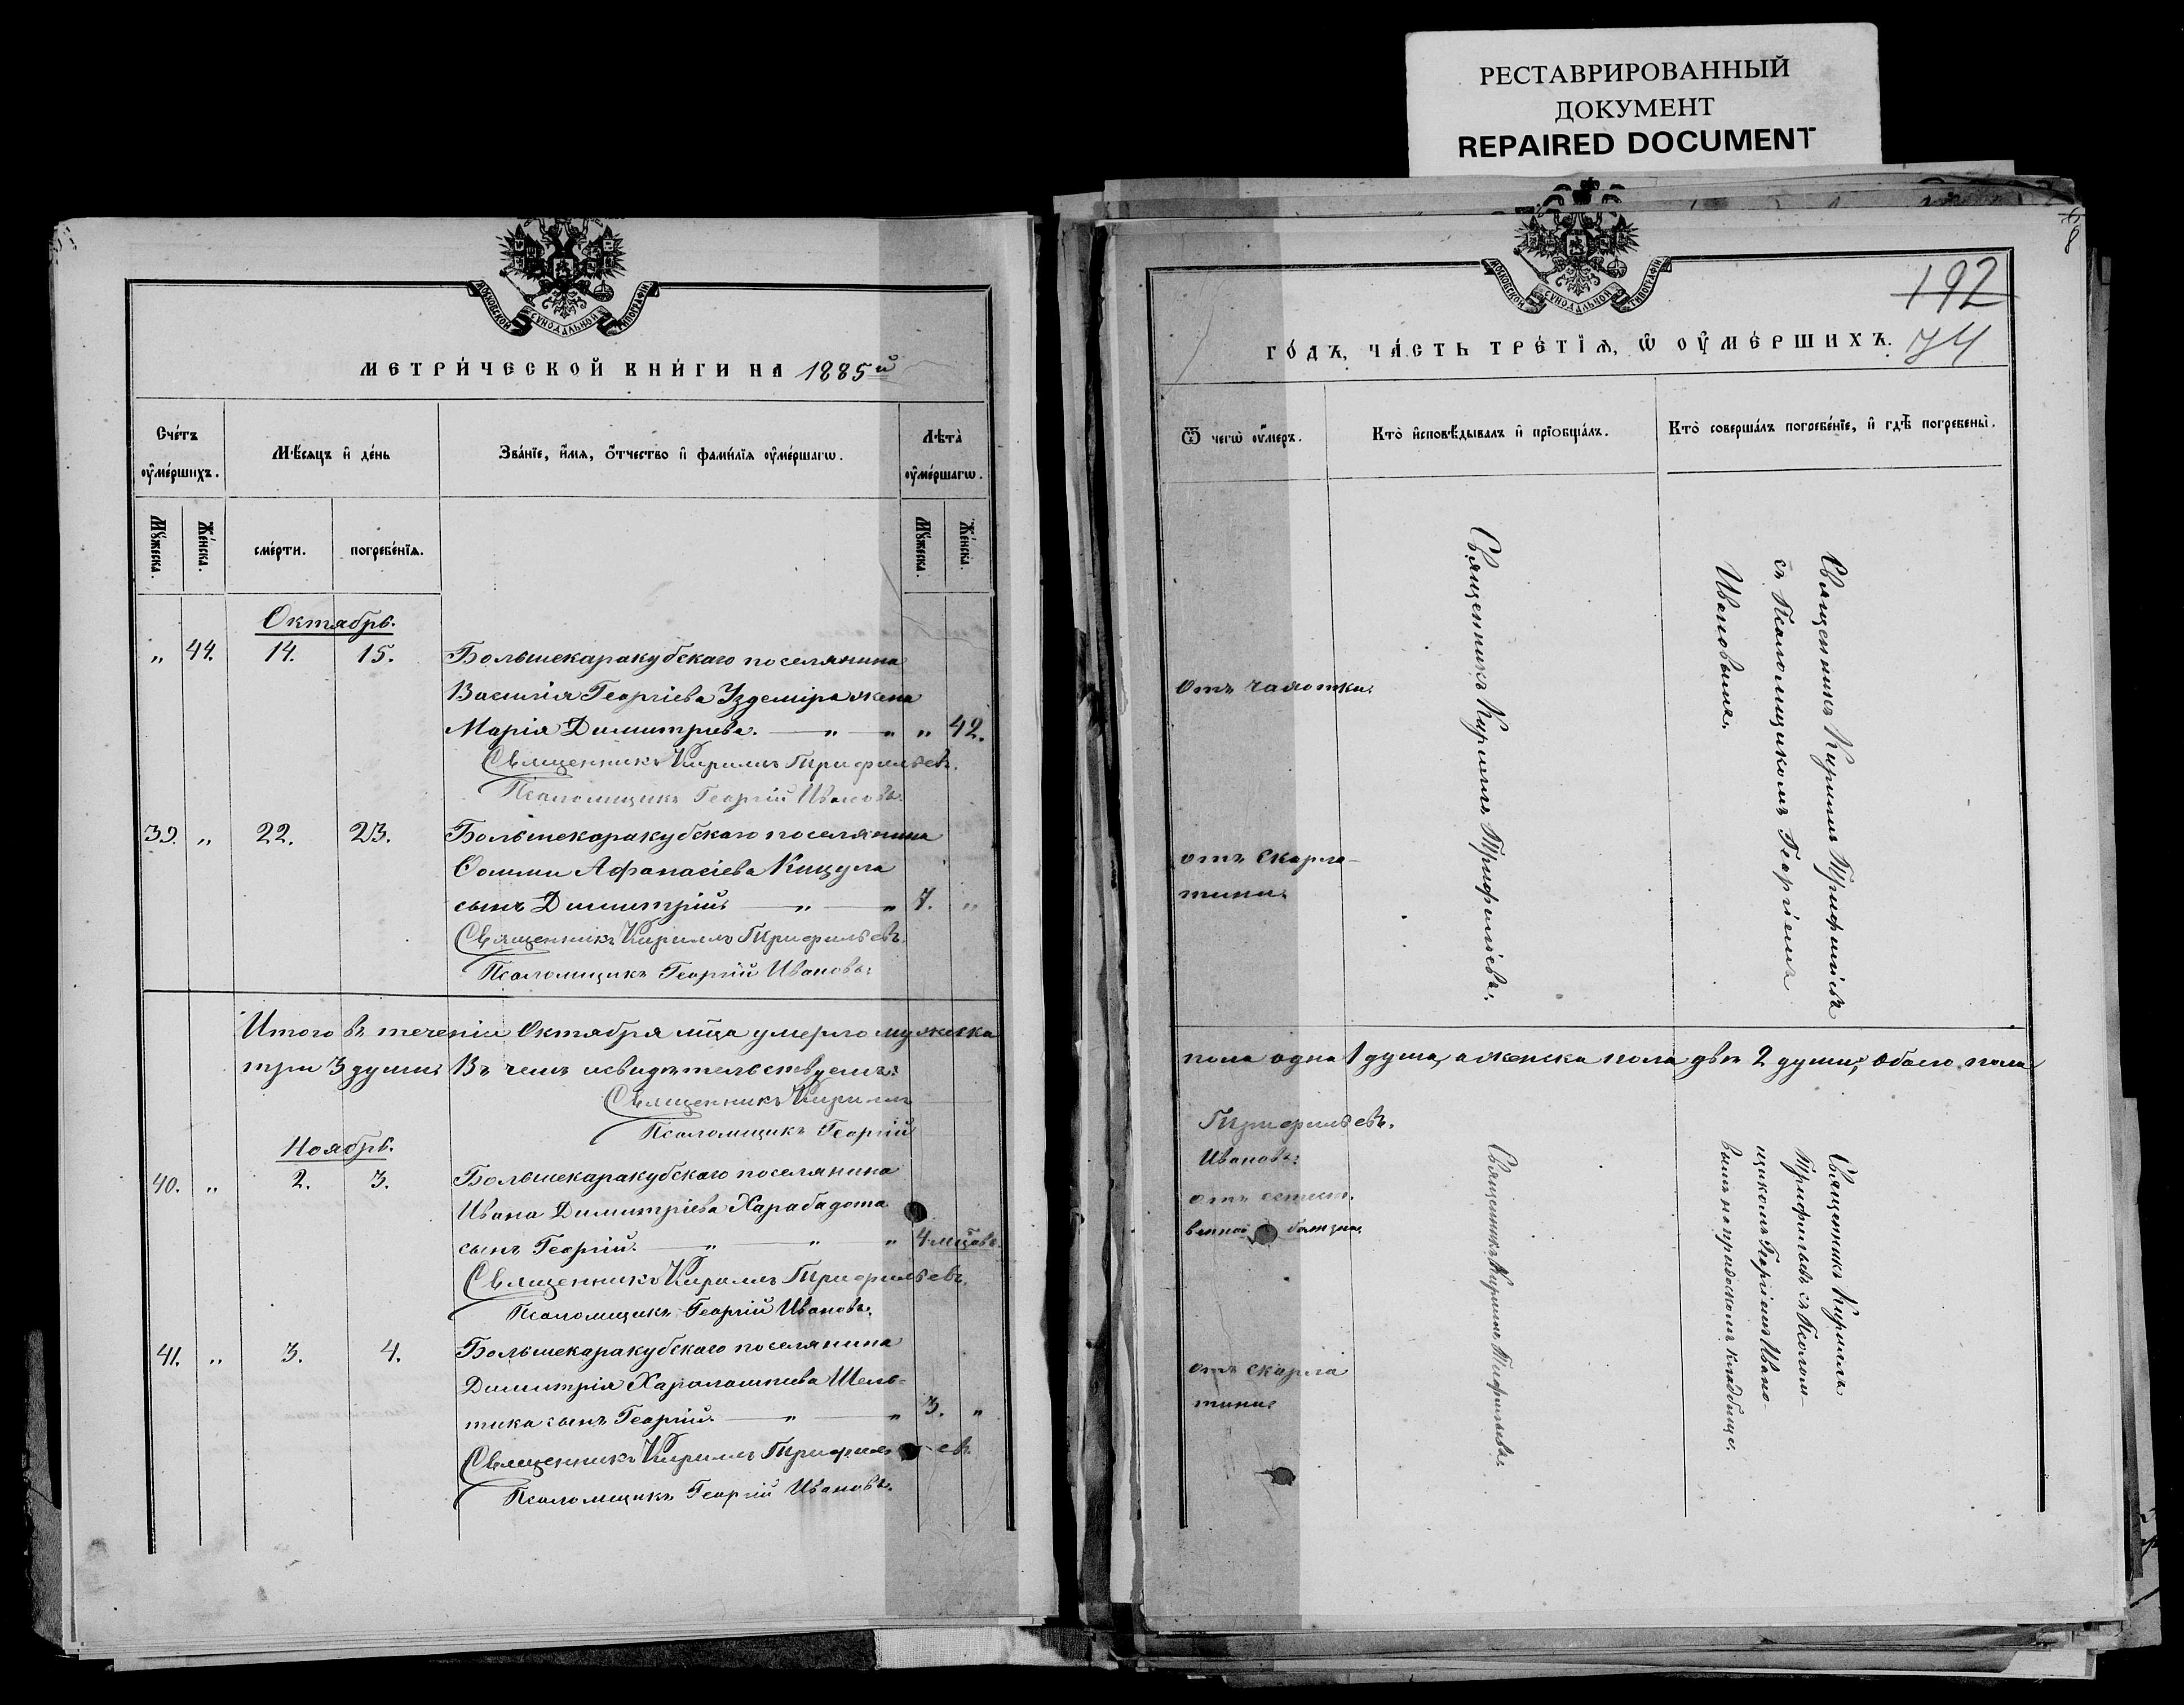 РЕСТАВРИРОВАННЫЙ
ДОКУМЕНТ
REPAIRED DOCUMENT
МОСКОВСКОЙ СѴНОДАЛЬНОЙ ТИПОГРАФІИ
МЕТРИ́ЧЕСКОЙ КНИ́ГИ НА 1885й
Сче́тъ оу҆ме́ршихъ.
Мѣ́сяцъ и҆ де́нь
Зва́нїе, и҆́мя, ѻ҆́тчество и҆ фами́лїя оу҆ме́ршагѡ.
Лѣта̀ оу҆ме́ршагѡ.
Мꙋ́жеска.
Же́нска.
сме́рти.
погребе́нїя.
Мꙋ́жеска.
Же́нска.
Октябрь.
„ 44. 14. 15. Большекаракубскаго поселянина
Василія Георгіева Уздеміра жена
Марія Димитріева. — „ — „ „ 42.
Священникъ Кириллъ Трифильевъ.
Псаломщикъ Георгій Ивановъ.
39. „ 22. 23. Большекаракубскаго поселянина
Ѳомы Афанасіева Кицула
сынъ Димитрій — „ — „ 7. „
Священникъ Кириллъ Трифильевъ.
Псаломщикъ Георгій Ивановъ.
Итого въ теченіи Октября мца умерло мужеска
три 3 души. Въ чемъ и свидѣтельствуемъ:
Священникъ Кириллъ
Псаломщикъ Георгій
Ноябрь.
40. „ 2. 3. Большекаракубскаго поселянина
Ивана Димитріева Харабадота
сынъ Георгій. — „ „ „ 4 мцовъ.
Священникъ Кириллъ Трифильевъ.
Псаломщикъ Георгій Ивановъ.
41. „ 3. 4. Большекаракубскаго поселянина
Димитрія Харалампіева Шель-
тика сынъ Георгій. — „ — „ 3. „
Священникъ Кириллъ Трифильевъ
Псаломщикъ Георгій Ивановъ.
МОСКОВСКОЙ СѴНОДАЛЬНОЙ ТИПОГРАФІИ
192
74
ГО́ДЪ, ЧА́СТЬ ТРЕ́ТЇѦ, Ѡ҆ ОУ҆МЕ́РШИХЪ.
Ѿ чегѡ̀ оу҆́меръ.
Кто̀ и҆сповѣ́дывалъ и҆ прїобща́лъ.
Кто̀ соверша́лъ погребе́нїе, и҆ гдѣ̀ погребены̀.
отъ чахотки.
отъ скарла-
тины.
Священникъ Кириллъ Трифиліевъ.
Священникъ Кириллъ Трифиліевъ
съ Псаломщикомъ Георгіемъ
Ивановымъ.
пола одна 1 душа, а женска пола двѣ 2 души, обоего пола
Трифильевъ.
Ивановъ.
отъ естест.
венной болѣзни.
отъ скарла
тины
Священникъ Кириллъ Трифильевъ.
Священникъ Кириллъ
Трифильевъ съ Псалом-
щикомъ Георгіемъ Ивано
вымъ на приходскомъ кладбищѣ.